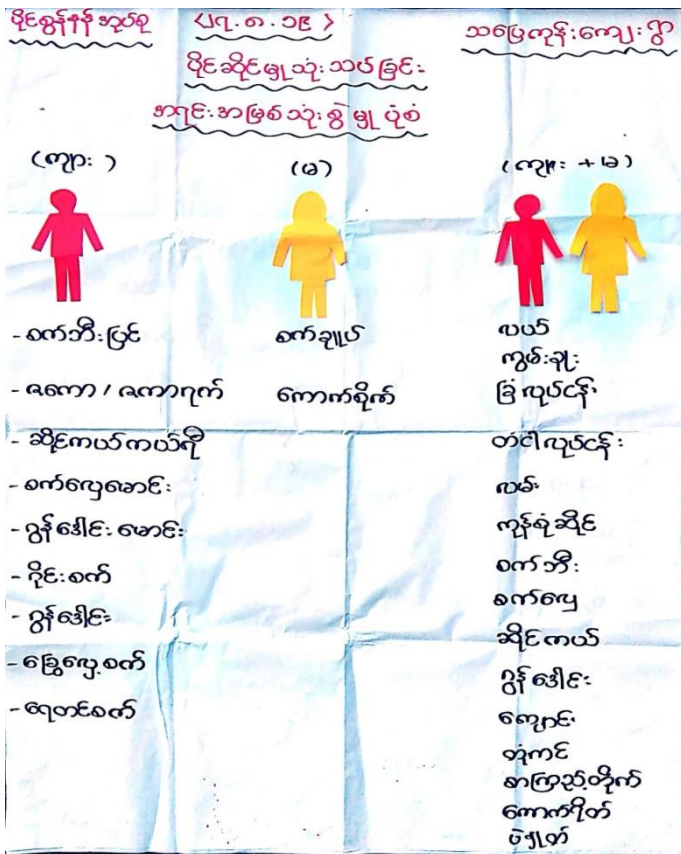 ပိုင်စွန်နန် အုပ်စု
<၁၇.၈.၁၉>
သပြေကုန်းကျေးရွာ
ပိုင်ဆိုင်မှုသုံးသပ်ခြင်း
အရင်းအမြစ်သုံးစွဲမှုပုံစံ
(ကျား)
(မ)
(ကျား + မ)
- စက်ဘီးပြင်
- ဇကော / ဇကာရက်
- ဆိုင်ကယ်ကယ်ရီ
- စက်လှေမောင်း
- ဂွန်ဒေါင်းမောင်း
- ဂိုင်းစက်
- ဂွန်ဒေါင်း
- ခြွေလှေ့စက်
- ရေတင်စက်
စက်ချုပ်
ကောက်စိုက်
လယ်
ကျွမ်းချုး
ခြံလုပ်ငန်း
တံငါလုပ်ငန်း
လမ်း
ကုန်စုံဆိုင်
စက်ဘီး
စက်လှေ
ဆိုင်ကယ်
ဂွန်ဒေါင်း
ကျောင်း
တုံကင်
စာကြည့်တိုက်
ကောက်ရိတ်
ပဲနှုတ်